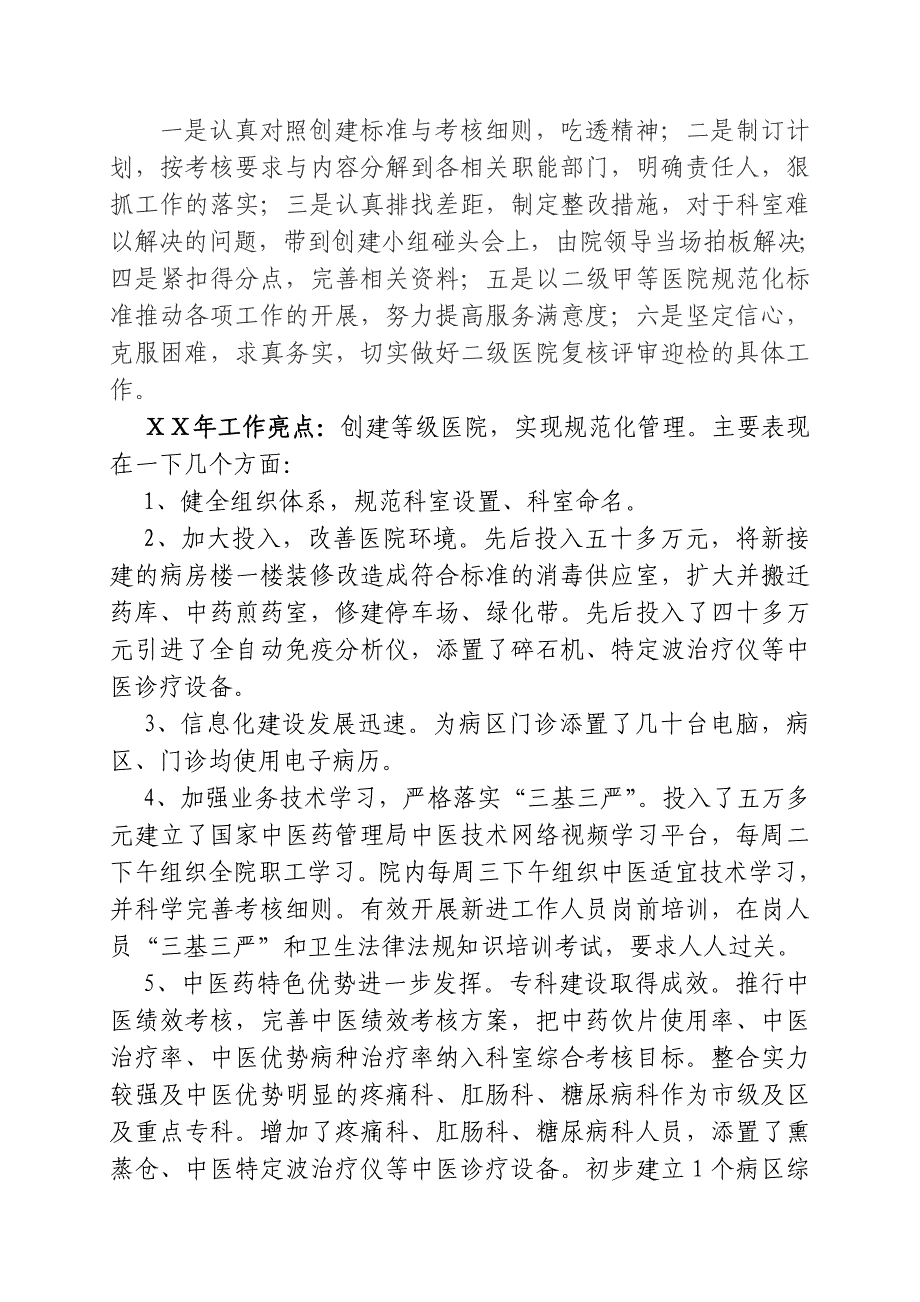 一是认真对照创建标准与考核细则，吃透精神；二是制订计
划，按考核要求与内容分解到各相关职能部门，明确责任人，狠
抓工作的落实；三是认真排找差距，制定整改措施，对于科室难
以解决的问题，带到创建小组碰头会上，由院领导当场拍板解决；
四是紧扣得分点，完善相关资料；五是以二级甲等医院规范化标
准推动各项工作的开展，努力提高服务满意度；六是坚定信心，
克服困难，求真务实，切实做好二级医院复核评审迎检的具体工
作。
ＸＸ年工作亮点：创建等级医院，实现规范化管理。主要表现
在一下几个方面：
1、健全组织体系，规范科室设置、科室命名。
2、加大投入，改善医院环境。先后投入五十多万元，将新接
建的病房楼一楼装修改造成符合标准的消毒供应室，扩大并搬迁
药库、中药煎药室，修建停车场、绿化带。先后投入了四十多万
元引进了全自动免疫分析仪，添置了碎石机、特定波治疗仪等中
医诊疗设备。
3、信息化建设发展迅速。为病区门诊添置了几十台电脑，病
区、门诊均使用电子病历。
4、加强业务技术学习，严格落实“三基三严”。投入了五万多
元建立了国家中医药管理局中医技术网络视频学习平台，每周二
下午组织全院职工学习。院内每周三下午组织中医适宜技术学习，
并科学完善考核细则。有效开展新进工作人员岗前培训，在岗人
员“三基三严”和卫生法律法规知识培训考试，要求人人过关。
5、中医药特色优势进一步发挥。专科建设取得成效。推行中
医绩效考核，完善中医绩效考核方案，把中药饮片使用率、中医
治疗率、中医优势病种治疗率纳入科室综合考核目标。整合实力
较强及中医优势明显的疼痛科、肛肠科、糖尿病科作为市级及区
及重点专科。增加了疼痛科、肛肠科、糖尿病科人员，添置了熏
蒸仓、中医特定波治疗仪等中医诊疗设备。初步建立１个病区综